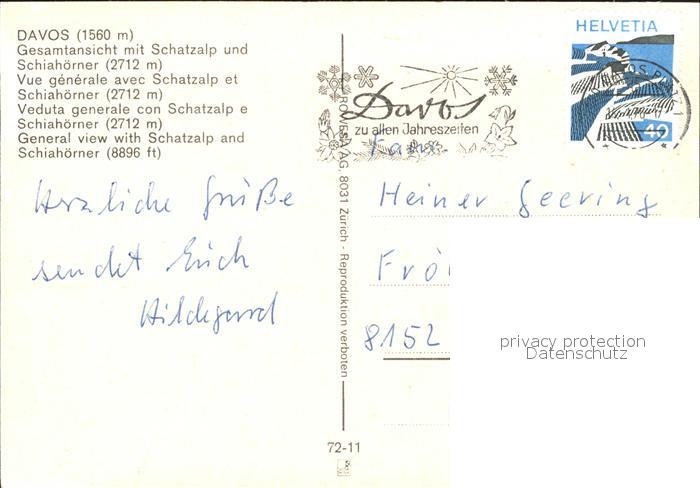 DAVOS (1560 m)
Gesamtansicht mit Schatzalp und
Schiahörner (2712 m)
Vue générale avec Schatzalp et
Schiahörner (2712 m)
Veduta generale con Schatzalp e
Schiahörner (2712 m)
General view with Schatzalp and
Schiahörner (8896 ft)
Herzliche Grüße
sendet Euch
Hildegard
ROVESA AG, 8031 Zürich - Reproduktion verboten
72-11
HELVETIA
40
Davos
zu allen Jahreszeiten
Fam.
Heiner Geering
Frö
8152
privacy protection
Datenschutz